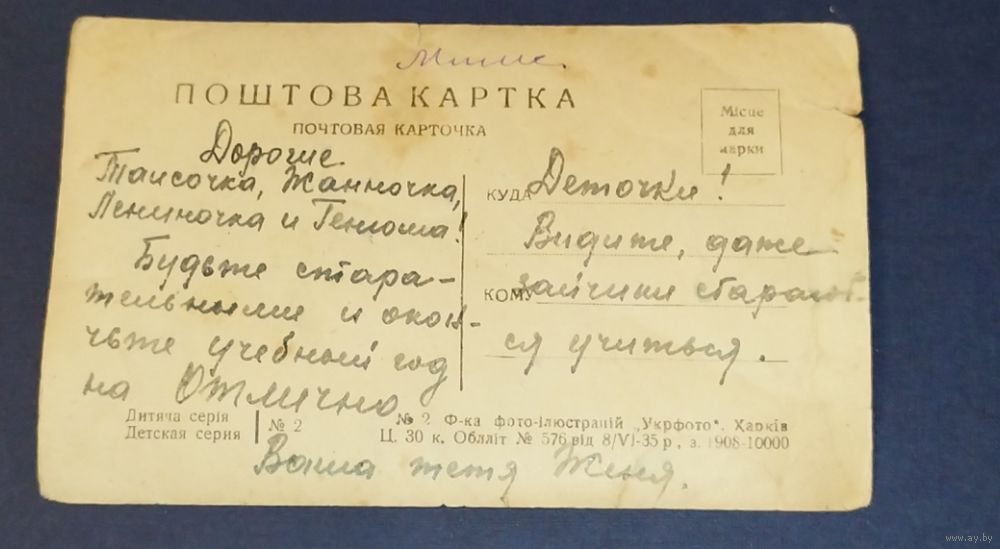 ПОШТОВА КАРТКА
ПОЧТОВАЯ КАРТОЧКА
Місце
для
марки
Дорогие
Таисочка, Жанночка,
Лениночка и Генюша!
Будьте стара-
тельными и окон-
чьте учебный год
на Отлично
КУДА Деточки!
Видите, даже
КОМУ зайчики старают
ся учиться.
Дитяча серія
Детская серия
№ 2
№ 2 Ф-ка фото-ілюстрацій „Укрфото". Харків
Ц. 30 к. Обллiт № 576 від 8/VI-35 р., з. 1908-10000
Ваша тетя Женя.
www.ay.by